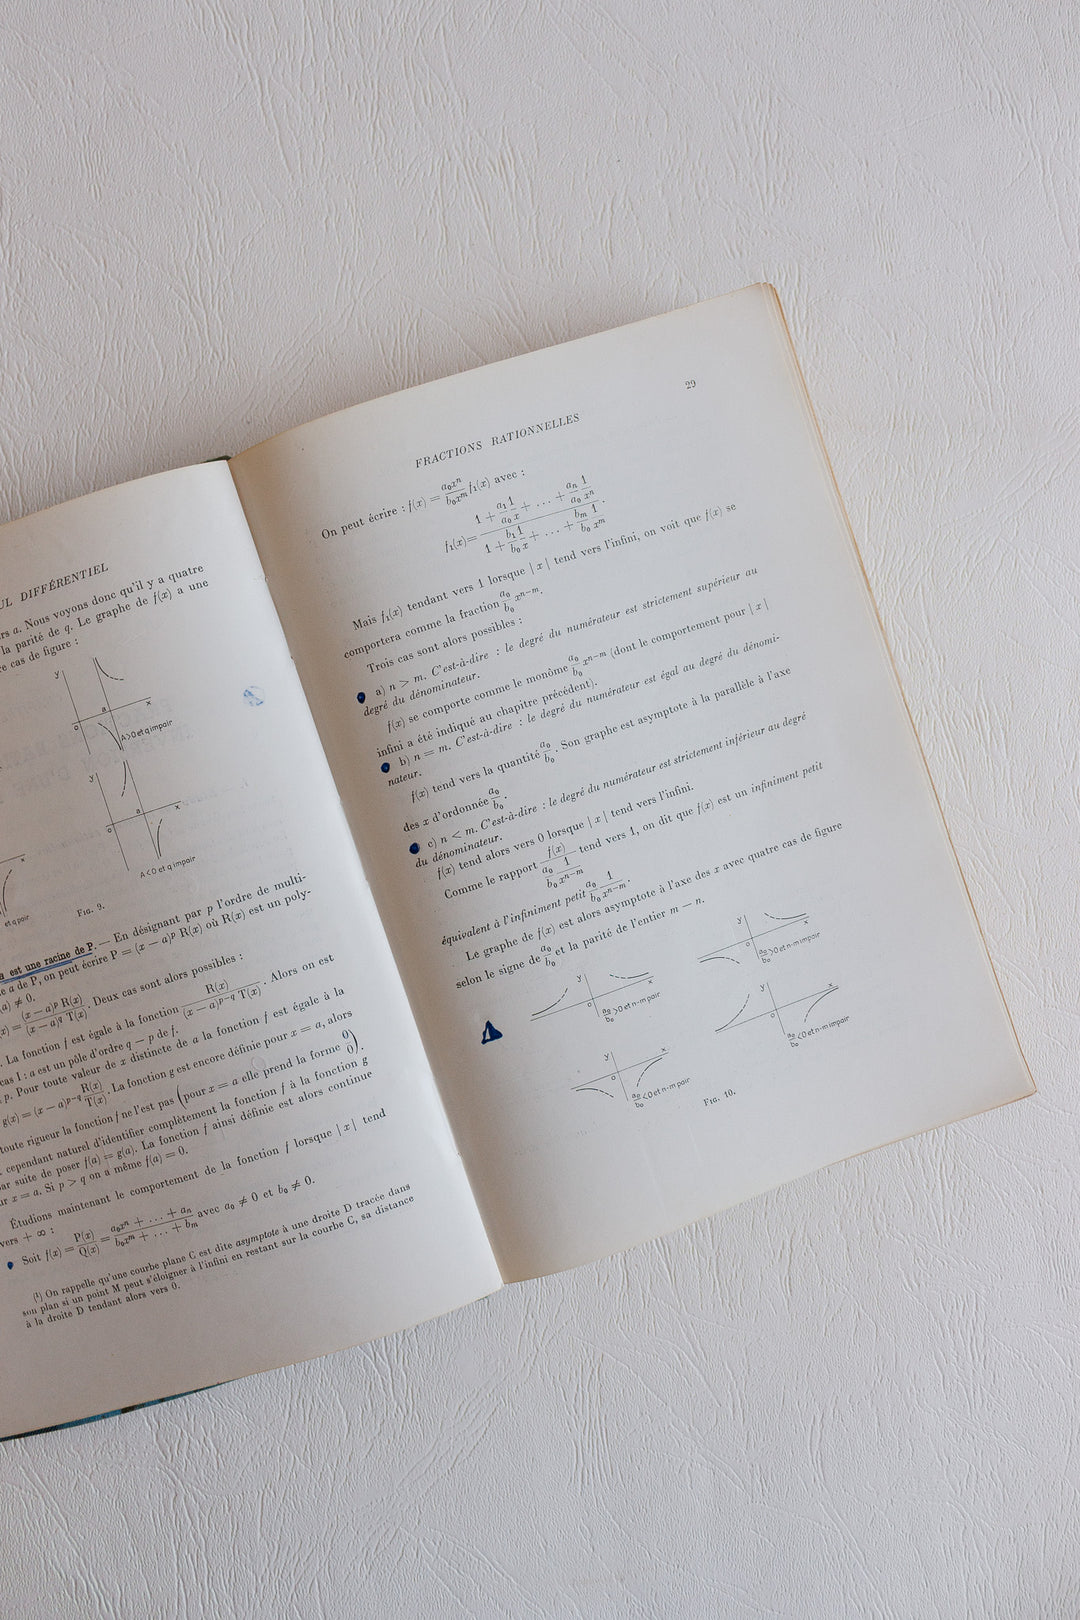 UL DIFFÉRENTIEL
rs a. Nous voyons donc qu'il y a quatre
la parité de q. Le graphe de f(x) a une
e cas de figure :
y
a
O
x
A>0 et q impair
y
a
O
x
A<0 et q impair
x
et q pair
FIG. 9.
a est une racine de P. — En désignant par p l'ordre de multi-
e a de P, on peut écrire P = (x — a)^p R(x) où R(x) est un poly-
(a) ≠ 0.
(x) = (x — a)^p R(x) / (x — a)^q T(x). Deux cas sont alors possibles :
. La fonction f est égale à la fonction R(x) / (x — a)^{p—q} T(x). Alors on est
cas I : a est un pôle d'ordre q — p de f.
p. Pour toute valeur de x distincte de a la fonction f est égale à la
g(x) = (x — a)^{p—q} R(x)/T(x). La fonction g est encore définie pour x = a, alors
toute rigueur la fonction f ne l'est pas (pour x = a elle prend la forme 0/0).
cependant naturel d'identifier complètement la fonction f à la fonction g
par suite de poser f(a) = g(a). La fonction f ainsi définie est alors continue
ur x = a. Si p > q on a même f(a) = 0.
Étudions maintenant le comportement de la fonction f lorsque | x | tend
vers + ∞ :
Soit f(x) = P(x)/Q(x) = (a₀xⁿ + ... + aₙ)/(b₀xᵐ + ... + bₘ) avec a₀ ≠ 0 et b₀ ≠ 0.
(¹) On rappelle qu'une courbe plane C est dite asymptote à une droite D tracée dans
son plan si un point M peut s'éloigner à l'infini en restant sur la courbe C, sa distance
à la droite D tendant alors vers 0.
29
FRACTIONS RATIONNELLES
On peut écrire : f(x) = a₀xⁿ/b₀xᵐ f₁(x) avec :
f₁(x) = (1 + a₁/a₀ 1/x + ... + aₙ/a₀ 1/xⁿ) / (1 + b₁/b₀ 1/x + ... + bₘ/b₀ 1/xᵐ).
Mais f₁(x) tendant vers 1 lorsque | x | tend vers l'infini, on voit que f(x) se
comportera comme la fraction a₀/b₀ xⁿ⁻ᵐ.
Trois cas sont alors possibles :
a) n > m. C'est-à-dire : le degré du numérateur est strictement supérieur au
degré du dénominateur.
f(x) se comporte comme le monôme a₀/b₀ xⁿ⁻ᵐ (dont le comportement pour | x |
infini a été indiqué au chapitre précédent).
b) n = m. C'est-à-dire : le degré du numérateur est égal au degré du dénomi-
nateur.
f(x) tend vers la quantité a₀/b₀. Son graphe est asymptote à la parallèle à l'axe
des x d'ordonnée a₀/b₀.
c) n < m. C'est-à-dire : le degré du numérateur est strictement inférieur au degré
du dénominateur.
f(x) tend alors vers 0 lorsque | x | tend vers l'infini.
Comme le rapport f(x) / (a₀/b₀ 1/xⁿ⁻ᵐ) tend vers 1, on dit que f(x) est un infiniment petit
équivalent à l'infiniment petit a₀/b₀ 1/xⁿ⁻ᵐ.
Le graphe de f(x) est alors asymptote à l'axe des x avec quatre cas de figure
selon le signe de a₀/b₀ et la parité de l'entier m — n.
y
x
O
a₀/b₀ >0 et n-m pair
y
x
O
a₀/b₀ >0 et n-m impair
y
x
O
a₀/b₀ <0 et n-m pair
y
x
O
a₀/b₀ <0 et n-m impair
FIG. 10.